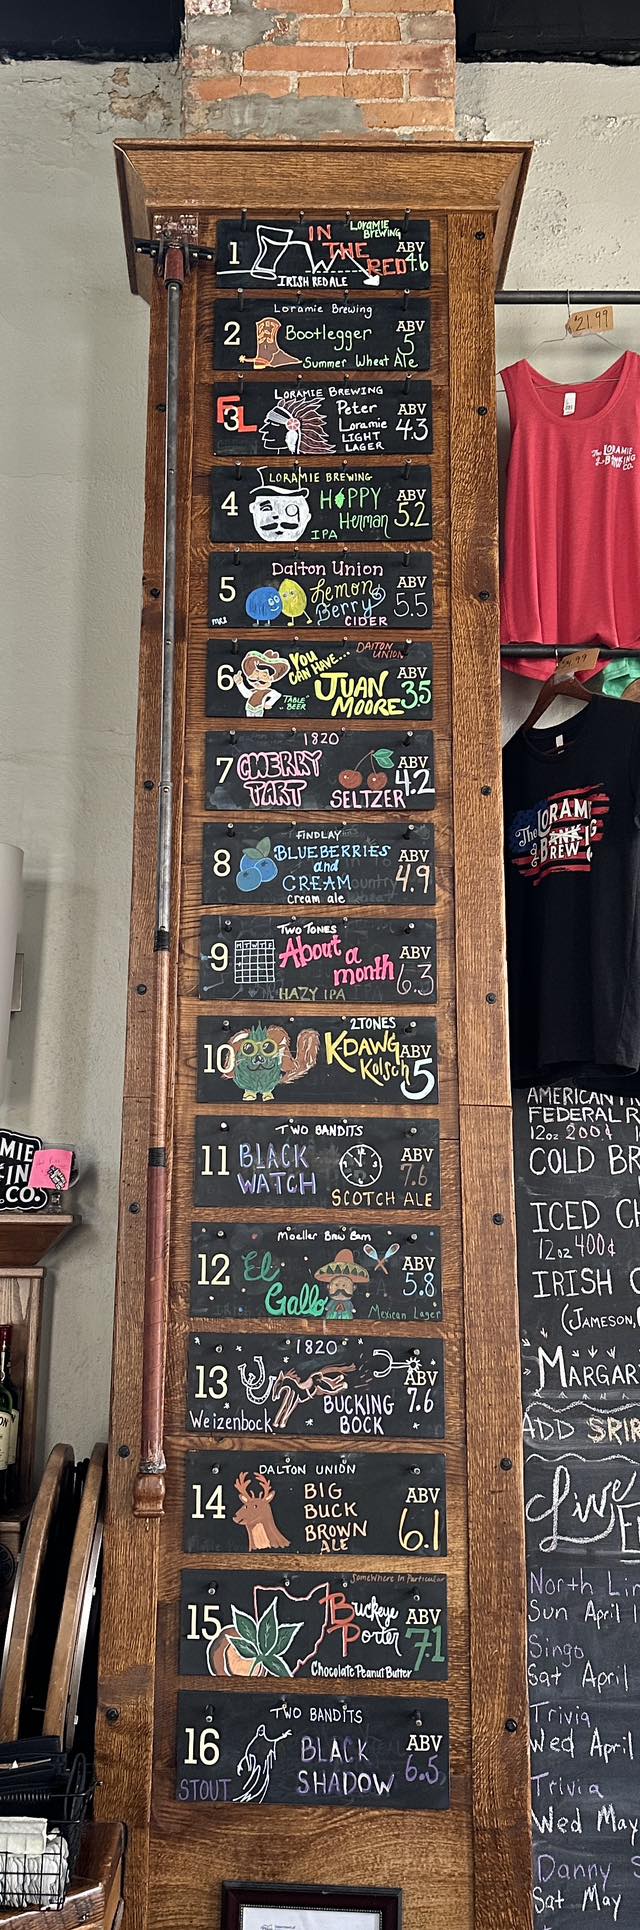 1
IN
THE
RED
LORAMIE
BREWING
ABV
4.6
IRISH RED ALE
Loramie Brewing
2
Bootlegger
ABV
5
Summer Wheat Ale
LORAMIE BREWING
3
Peter
Loramie
LIGHT
LAGER
ABV
4.3
LORAMIE BREWING
4
HOPPY
Herman
IPA
ABV
5.2
Dalton Union
5
Lemon
Berry
CIDER
ABV
5.5
DALTON
UNION
6
YOU
CAN HAVE...
"TABLE"
BEER
JUAN
MOORE
ABV
3.5
1820
7
CHERRY
TART
SELTZER
ABV
4.2
FINDLAY
8
BLUEBERRIES
and
CREAM
cream ale
ABV
4.9
TWO TONES
9
MTWTFS
About a
month
HAZY IPA
ABV
6.3
2TONES
10
K-DAWG
Kolsch
ABV
5
TWO BANDITS
11
BLACK
WATCH
SCOTCH ALE
ABV
7.6
Moeller Brew Barn
12
El
Gallo
Mexican Lager
ABV
5.8
1820
13
Weizenbock
BUCKING
BOCK
ABV
7.6
DALTON UNION
14
BIG
BUCK
BROWN
ALE
ABV
6.1
Somewhere In Particular
15
Buckeye
Porter
Chocolate Peanut Butter
ABV
7.1
TWO BANDITS
16
STOUT
BLACK
SHADOW
ABV
6.5
$21.99
The LORAMIE
BANKING
CO.
The LORAMI
BANK
BREW
AMERICAN
FEDERAL R
12oz 200¢
COLD BR
ICED C
12oz 400¢
IRISH
(JAMESON,
MARGAR
ADD SPIR
Live
North Lin
Sun April
Singo
Sat April
Trivia
Wed April
Trivia
Wed May
Danny S
Sat May
MIE
IN
CO.